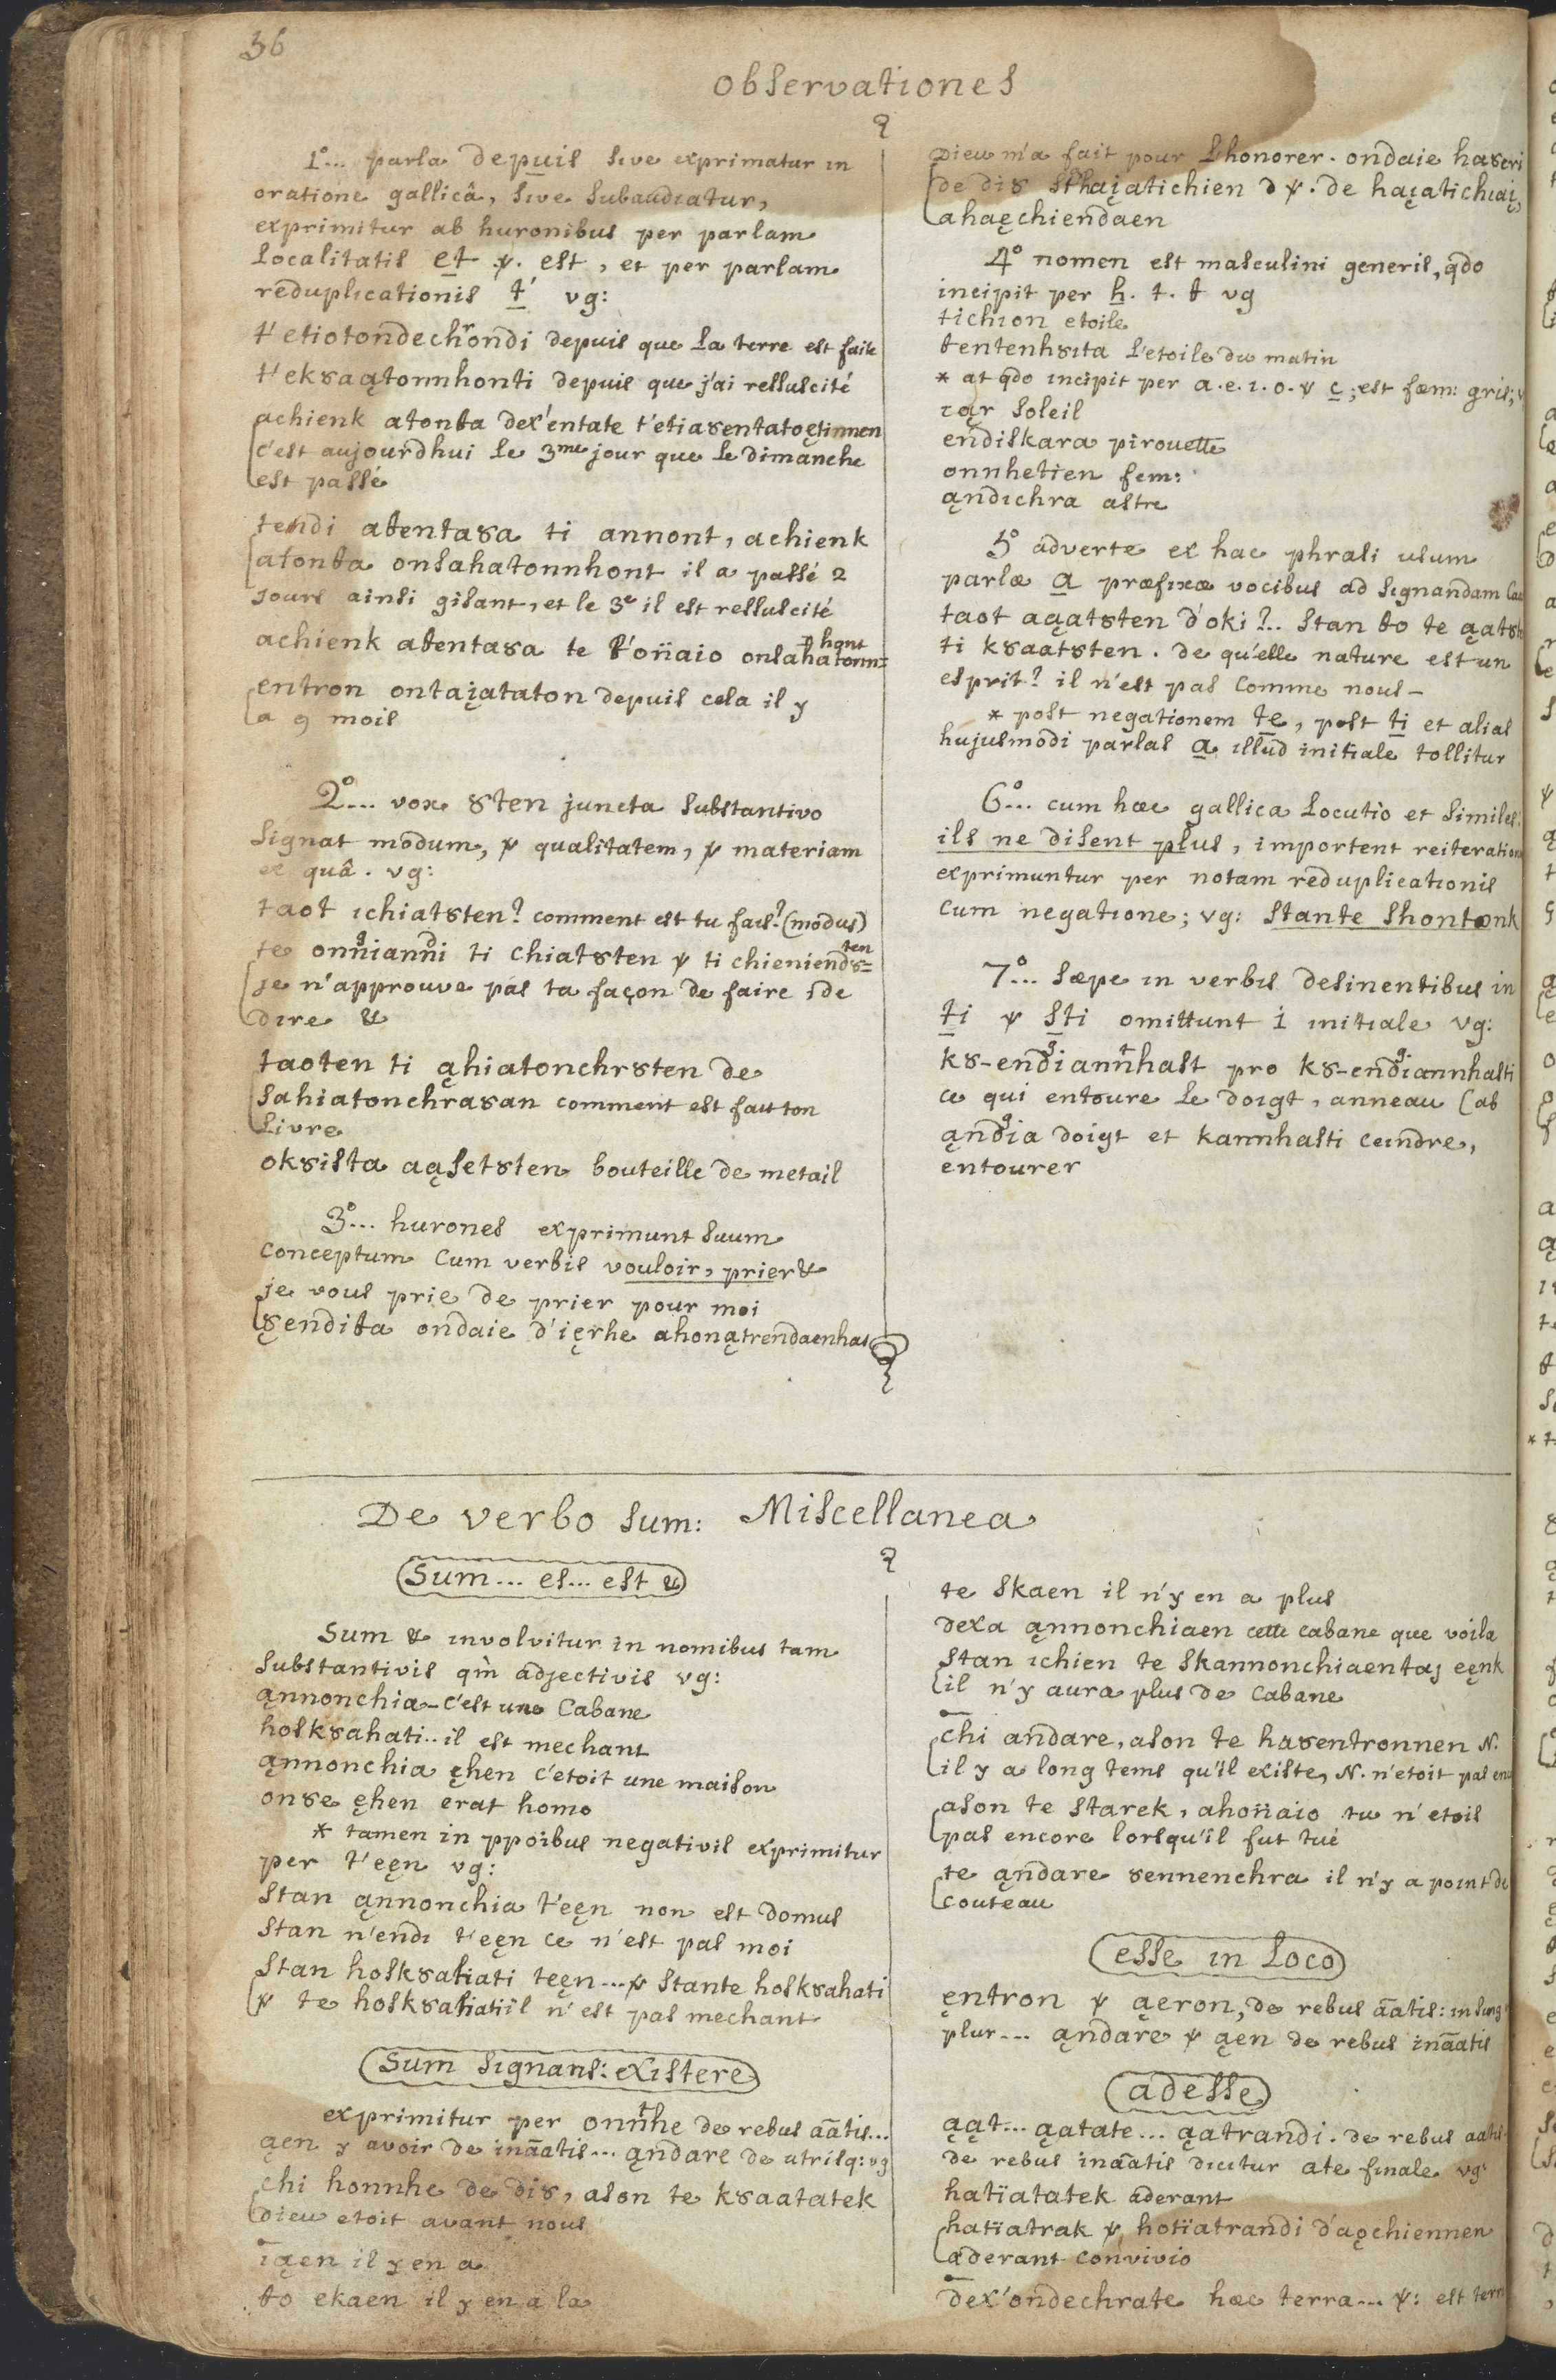 36
observationes
1°... parla depuis sive exprimatur in
oratione gallicâ, sive subaudiatur,
exprimitur ab huronibus per parlam
localitatis et ꝟ. est, et per parlam
reduplicationis t' vg:
t'etiotondechrondi depuis que la terre est faite
t'ekȣaątonnhonti depuis que j'ai ressuscité
achienk atonta dex'entate t'etiaȣentatoętinnen
c'est aujourdhui le 3me jour que le dimanche
est passé
tendi aθentaȣa ti annont, achienk
atonθa onsahatonnhont il a passé 2
jours ainsi gisant, et le 3e il est ressuscité
achienk aθentaȣa te θ'oñaio onsahatonn=hont
entron ontaįataton depuis cela il y
a 9 mois
2°... vox ȣten juncta substantivo
signat modum, ꝟ qualitatem, ꝟ materiam
ex quâ. vg:
taot ichiatȣten? comment est tu fais? (modus)
te onnianni ti chiatȣten ꝟ ti chieniendȣ=ten
je n'approuve pas ta façon de faire, de
dire &
taoten ti ąhiatonchrȣten de
sahiatonchraȣan comment est fait ton
livre
okȣista aąsetȣten bouteille de metail
3°... hurones exprimunt suum
conceptum cum verbis vouloir, prier &
je vous prie de prier pour moi
ȣęndiθa ondaie d'ięrhe ahonątrendaenhas
Dieu m'a fait pour lhonorer. ondaie haȣeri
de diȣ sthaįatichien d ꝟ. de haįatichiaį,
ahaęchiendaen
4° nomen est masculini generis, qdo
incipit per h. t. θ vg
tichion etoile
θentenhȣita l'etoile du matin
* at qdo incipit per a. e. i. o. ꝟ ę; est fœm: gris;
iąr soleil
endiskara pirouette
onnhetien fem:
ąndichra astre
5° adverte ex hac phrasi usum
parlæ a præfixæ vocibus ad signandam
taot aąatȣten d'oki?.. stan θo te ąatȣ
ti kȣaatȣten. de qu'elle nature est un
esprit? il n'est pas comme nous -
* post negationem te, post ti et alias
hujusmodi parlas a illud initiale tollitur
6°... cum hæc gallica locutio et similes:
ils ne disent plus, importent reiteration
exprimuntur per notam reduplicationis
cum negatione; vg: stante shontonk
7°... sæpe in verbis desinentibus in
ti ꝟ sti omittunt i initiale vg:
kȣ-endiannhast pro kȣ-endiannhasti
ce qui entoure le doigt, anneau (ab
ąndia doigt et kannhasti ceindre,
entourer
De verbo sum: Miscellanea
Sum... es... est &
Sum & involvitur in nomibus tam
substantivis qm̀ adjectivis vg:
ąnnonchia - c'est une Cabane
hoskȣahati.. il est mechant
ąnnonchia ęhen c'etoit une maison
onȣe ęhen erat homo
* tamen in ppoibus negativis exprimitur
per t'eęn vg:
stan ąnnonchia t'eęn non est domus
stan n'endi t'eęn ce n'est pas moi
stan hoskȣahati teęn... ꝟ stante hoskȣahati
ꝟ te hoskȣahati il n'est pas mechant
Sum signans: existere
exprimitur per onnhe de rebus aātis...
ąen y avoir de inaātis... ąndare de utrisq: vg
chi honnhe de diȣ, ason te kȣaatatek
dieu etoit avant nous
iąen il y en a
θo ekaen il y en a la
te skaen il n'y en a plus
dexa ąnnonchiaen cette cabane que voila
stan ichien te skannonchiaentaj eęnk
il n'y aura plus de cabane
chi andare, ason te haȣentronnen N.
il y a long tems qu'il existe, N. n'etoit pas
ason te starek, ahoñaio tu n'etois
pas encore lorsqu'il fut tué
te ąndare ȣennenchra il n'y a point de
couteau
esse in loco
ęntron ꝟ ąeron, de rebus aātis: in sing
plur... ąndare ꝟ ąen de rebus inaātis
adesse
ąąt... ąatate... ąatrandi. de rebus aatis
de rebus inaātis dicitur ate finale vg:
hatïatatek aderant
hatïatrak ꝟ hotïatrandi d'aǫchiennen
aderant convivio
dex'ondechrate hæc terra... ꝟ: est